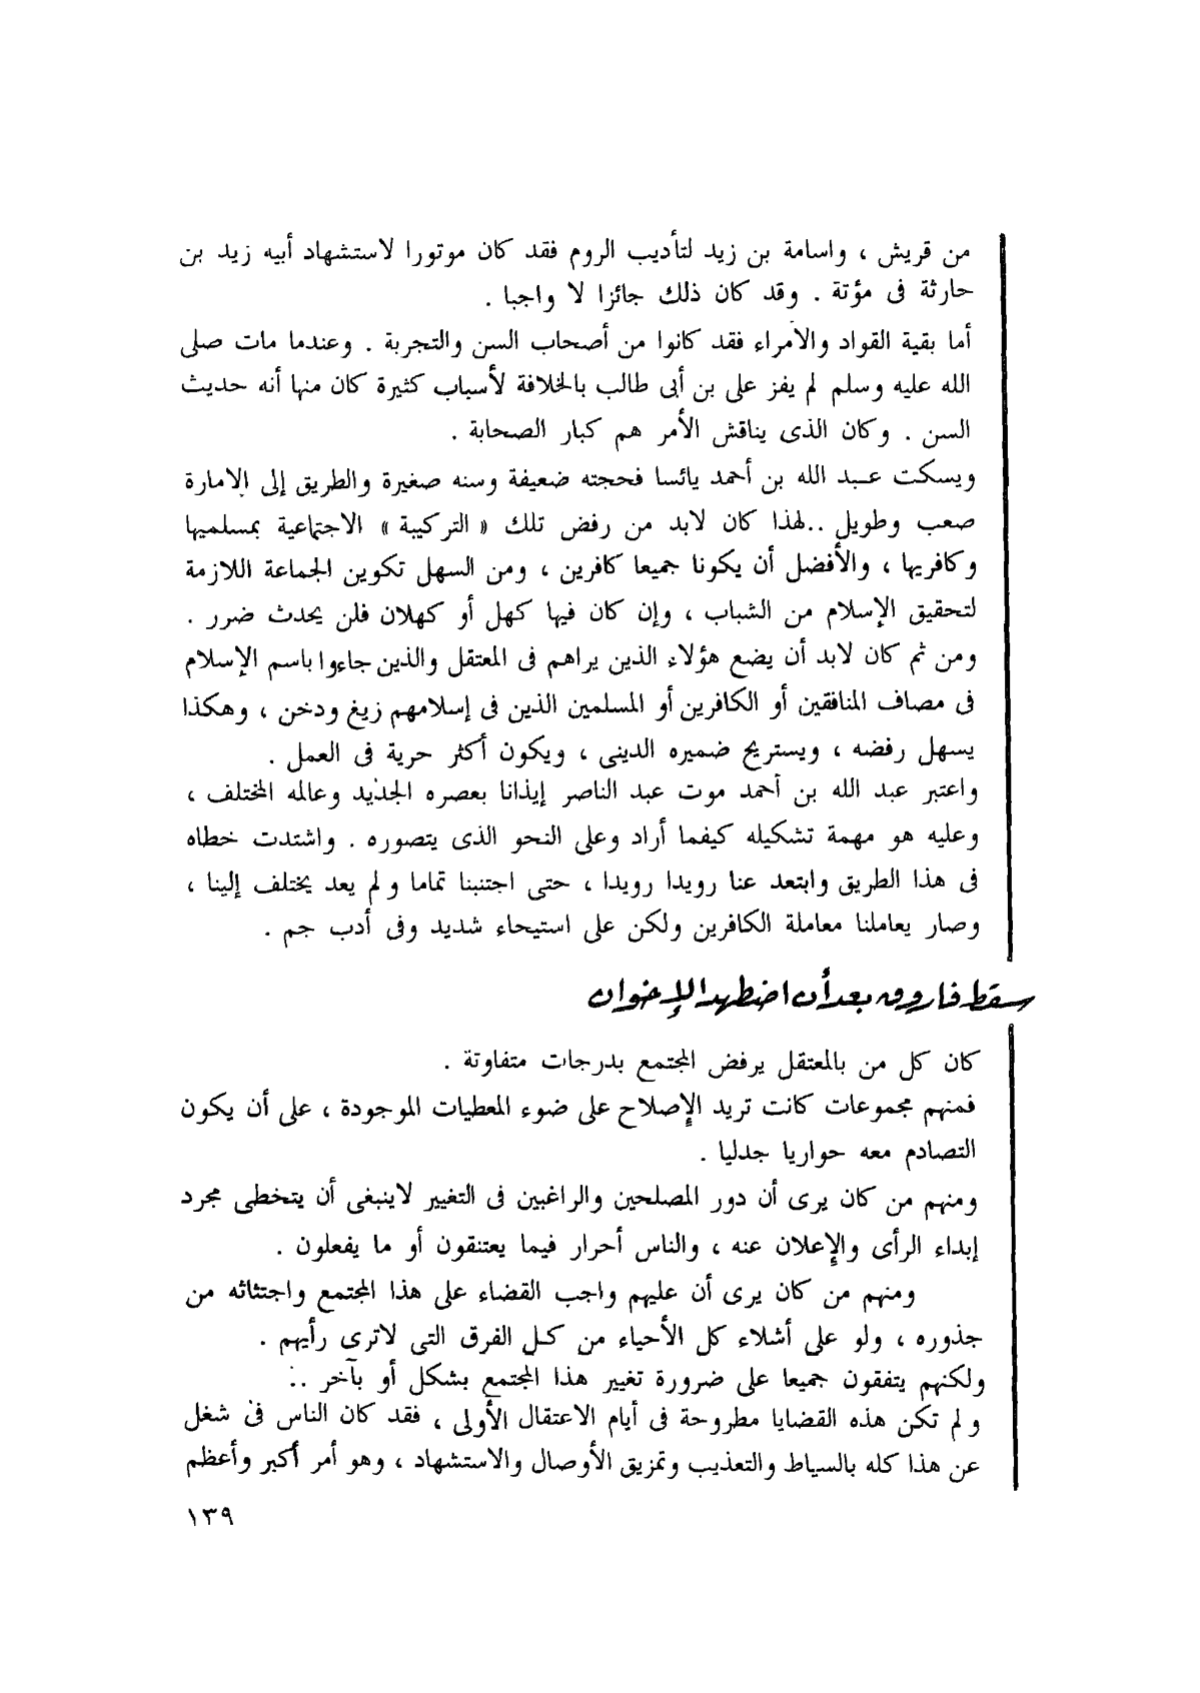 من قريش ، واسامة بن زيد لتأديب الروم فقد كان موتورا لاستشهاد أبيه زيد بن
حارثة فى مؤتة . وقد كان ذلك جائزا لا واجبا .
أما بقية القواد والأمراء فقد كانوا من أصحاب السن والتجربة . وعندما مات صلى
الله عليه وسلم لم يفز على بن أبى طالب بالخلافة لأسباب كثيرة كان منها أنه حديث
السن . وكان الذى يناقش الأمر هم كبار الصحابة .
ويسكت عبد الله بن أحمد يائسا فحجته ضعيفة وسنه صغيرة والطريق إلى الامارة
صعب وطويل ..لهذا كان لابد من رفض تلك « التركيبة » الاجتماعية بمسلميها
وكافريها ، والأفضل أن يكونا جميعا كافرين ، ومن السهل تكوين الجماعة اللازمة
لتحقيق الإسلام من الشباب ، وإن كان فيها كهل أو كهلان فلن يحدث ضرر .
ومن ثم كان لابد أن يضع هؤلاء الذين يراهم فى المعتقل والذين جاءوا باسم الإسلام
فى مصاف المنافقين أو الكافرين أو المسلمين الذين فى إسلامهم زيغ ودخن ، وهكذا
يسهل رفضه ، ويستريح ضميره الدينى ، ويكون أكثر حرية فى العمل .
واعتبر عبد الله بن أحمد موت عبد الناصر إيذانا بعصره الجديد وعالمه المختلف ،
وعليه هو مهمة تشكيله كيفما أراد وعلى النحو الذى يتصوره . واشتدت خطاه
فى هذا الطريق وابتعد عنا رويدا رويدا ، حتى اجتنبنا تماما ولم يعد يختلف إلينا ،
وصار يعاملنا معاملة الكافرين ولكن على استيحاء شديد وفى أدب جم .
سقط فاروق بعد أن اضطهد الإخوان
كان كل من بالمعتقل يرفض المجتمع بدرجات متفاوتة .
فمنهم مجموعات كانت تريد الإصلاح على ضوء المعطيات الموجودة ، على أن يكون
التصادم معه حواريا جدليا .
ومنهم من كان يرى أن دور المصلحين والراغبين فى التغيير لاينبغى أن يتخطى مجرد
إبداء الرأى والإعلان عنه ، والناس أحرار فيما يعتنقون أو ما يفعلون .
ومنهم من كان يرى أن عليهم واجب القضاء على هذا المجتمع واجتثاثه من
جذوره ، ولو على أشلاء كل الأحياء من كل الفرق التى لاترى رأيهم .
ولكنهم يتفقون جميعا على ضرورة تغيير هذا المجتمع بشكل أو بآخر ..
ولم تكن هذه القضايا مطروحة فى أيام الاعتقال الأولى ، فقد كان الناس فى شغل
عن هذا كله بالسياط والتعذيب وتمزيق الأوصال والاستشهاد ، وهو أمر أكبر وأعظم
١٣٩